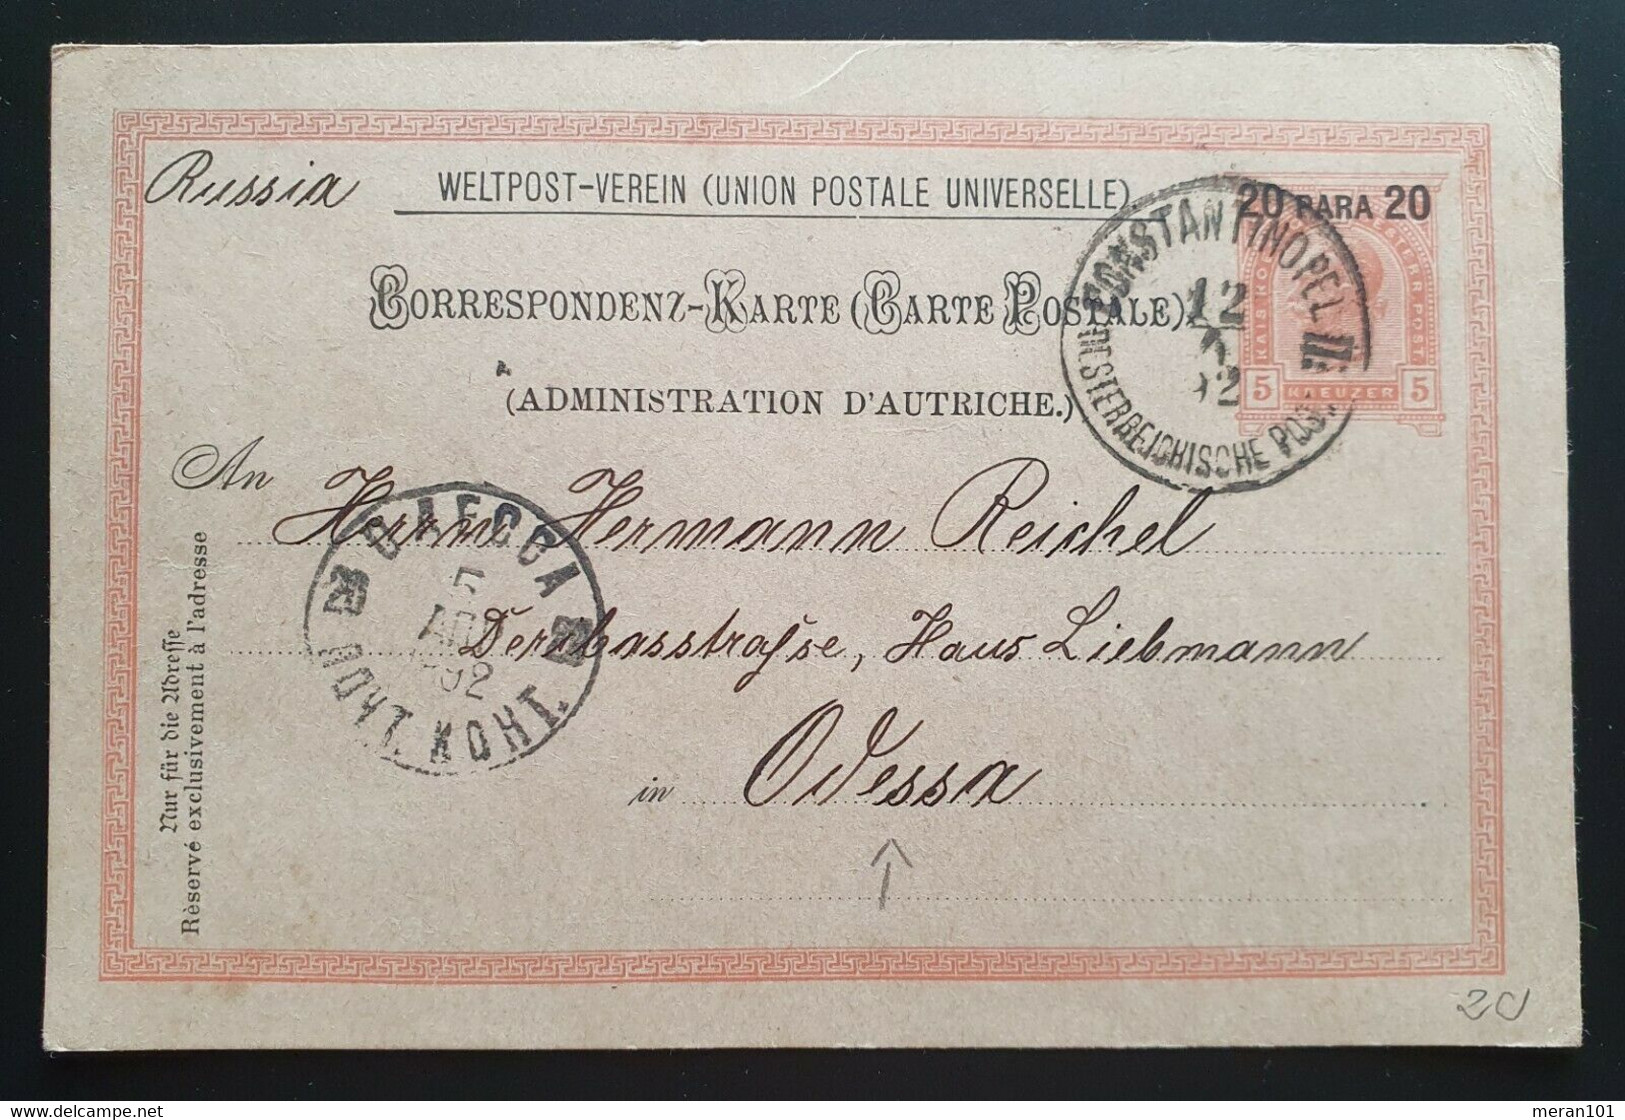 Russia
WELTPOST-VEREIN (UNION POSTALE UNIVERSELLE)
20 PARA 20
CORRESPONDENZ-KARTE (CARTE POSTALE)
(ADMINISTRATION D'AUTRICHE.)
KAIS. KÖ ESTERR. POST
5 KREUZER 5
CONSTANTINOPEL III
12
92
OESTERREICHISCHE POST
An Herrn Hermann Reichel
Derebasstraſse, Haus Liebmann
in Odessa
ОДЕССА
АПР
1892
ПОЧТ. КОНТ.
Nur für die Adreſſe
Rèservé exclusivement à l'adresse
20
delcampe.net
meran101